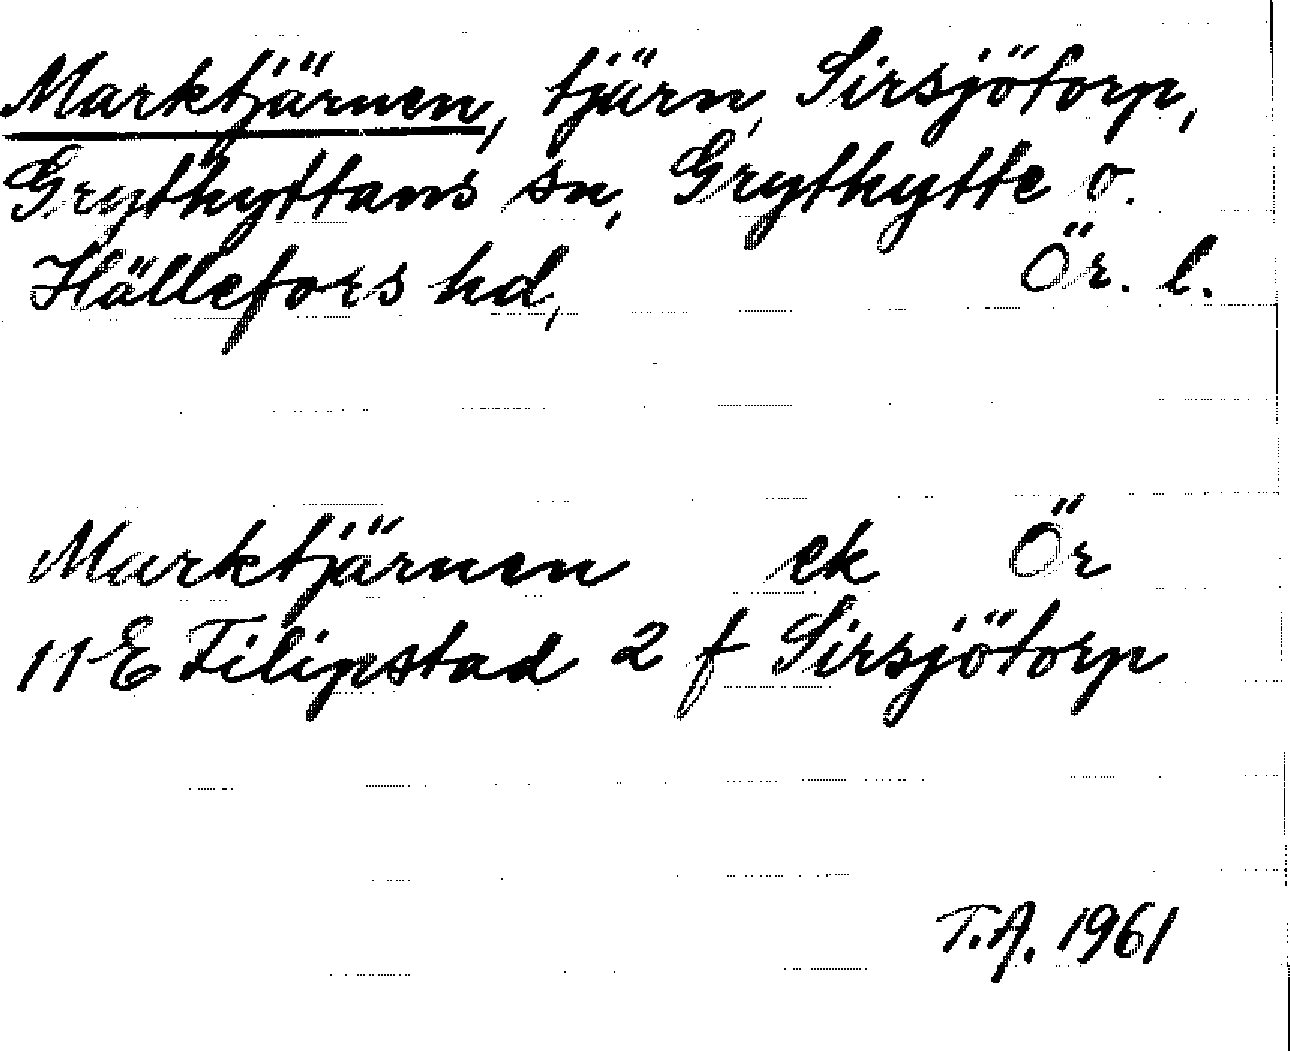 Marktjärnen, tjärn, Sirsjötorp,
Grythyttans sn, Grythytte o.
Hällefors hd, Ör. l.
Marktjärnen ek Ör
11E Filipstad 2 f Sirsjötorp
T.A. 1961